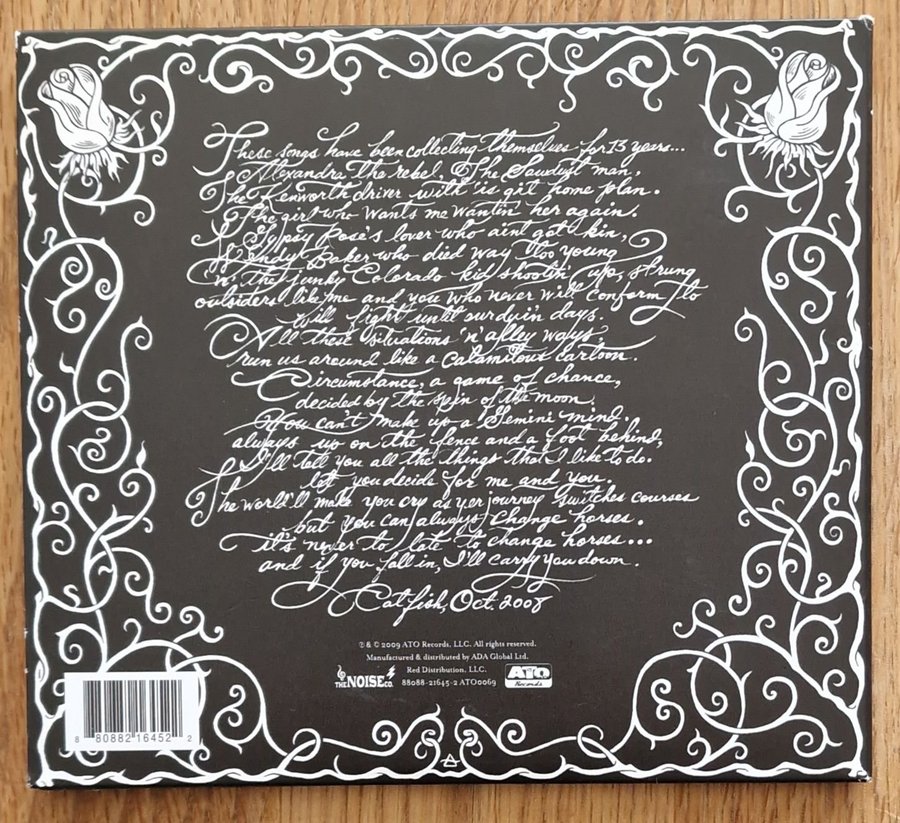 These songs have been collecting themselves for 13 years...
Alexandra the rebel, The Sawdust man,
The Kenworth driver with 'is girl home plan.
The girl who wants me wantin' her again.
Gypsy Rose's lover who ain't got kin,
Wendy Baker who died way too young
'n' the junky Colorado kid shootin' up, strung
outsiders like me and you who never will conform to
will fight until our dyin days.
All these situations 'n' alley ways,
run us around like a calamitous cartoon.
Circumstance, a game of chance,
decided by the spin of the moon.
If you can't make up a Gemini mind.
always up on the fence and a foot behind,
I'll tell you all the things that I like to do.
let you decide for me and you.
The world'll make you cry as yer journey switches courses
but you can always change horses.
it's never to late to change horses...
and if you fall in, I'll carry you down.
Catfish, Oct. 2008
℗ & © 2009 ATO Records, LLC. All rights reserved.
Manufactured & distributed by ADA Global Ltd.
Red Distribution, LLC.
THE NOISE CO. 88088-21645-2 ATO0069 ATO Records
8 80882 16452 2